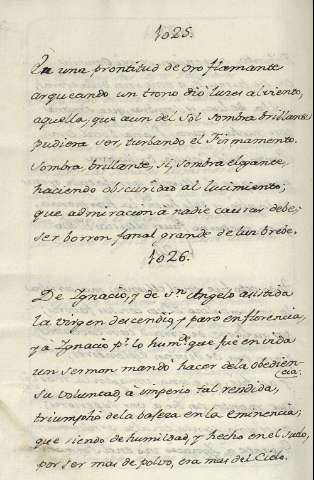 1025.
En una prontitud de oro flamante
arqueando un trono dió luzes al viento,
aquella, que aun del Sol sombra brillante
pudiera ser, turbando el Firmamento.
Sombra, brillante, si, sombra elgante,
haciendo obscuridad al lucimiento,
que admiracion à nadie causar debe,
ser borron fanal grande de luz brebe.
1026.
De Ignacio, y de Sn. Angelo asistida
la virgen descendio, y paró en florencia,
y a Ignacio pr. lo humo. que fue en vida
un sermon mandó hacer de la obedien-
cia.
su voluntad, à imperio tal rendida,
triumphò de la bafeza en la eminencia;
que siendo de humildad, y hecho en el suelo,
por ser mas de polvo, era mas del Cielo.